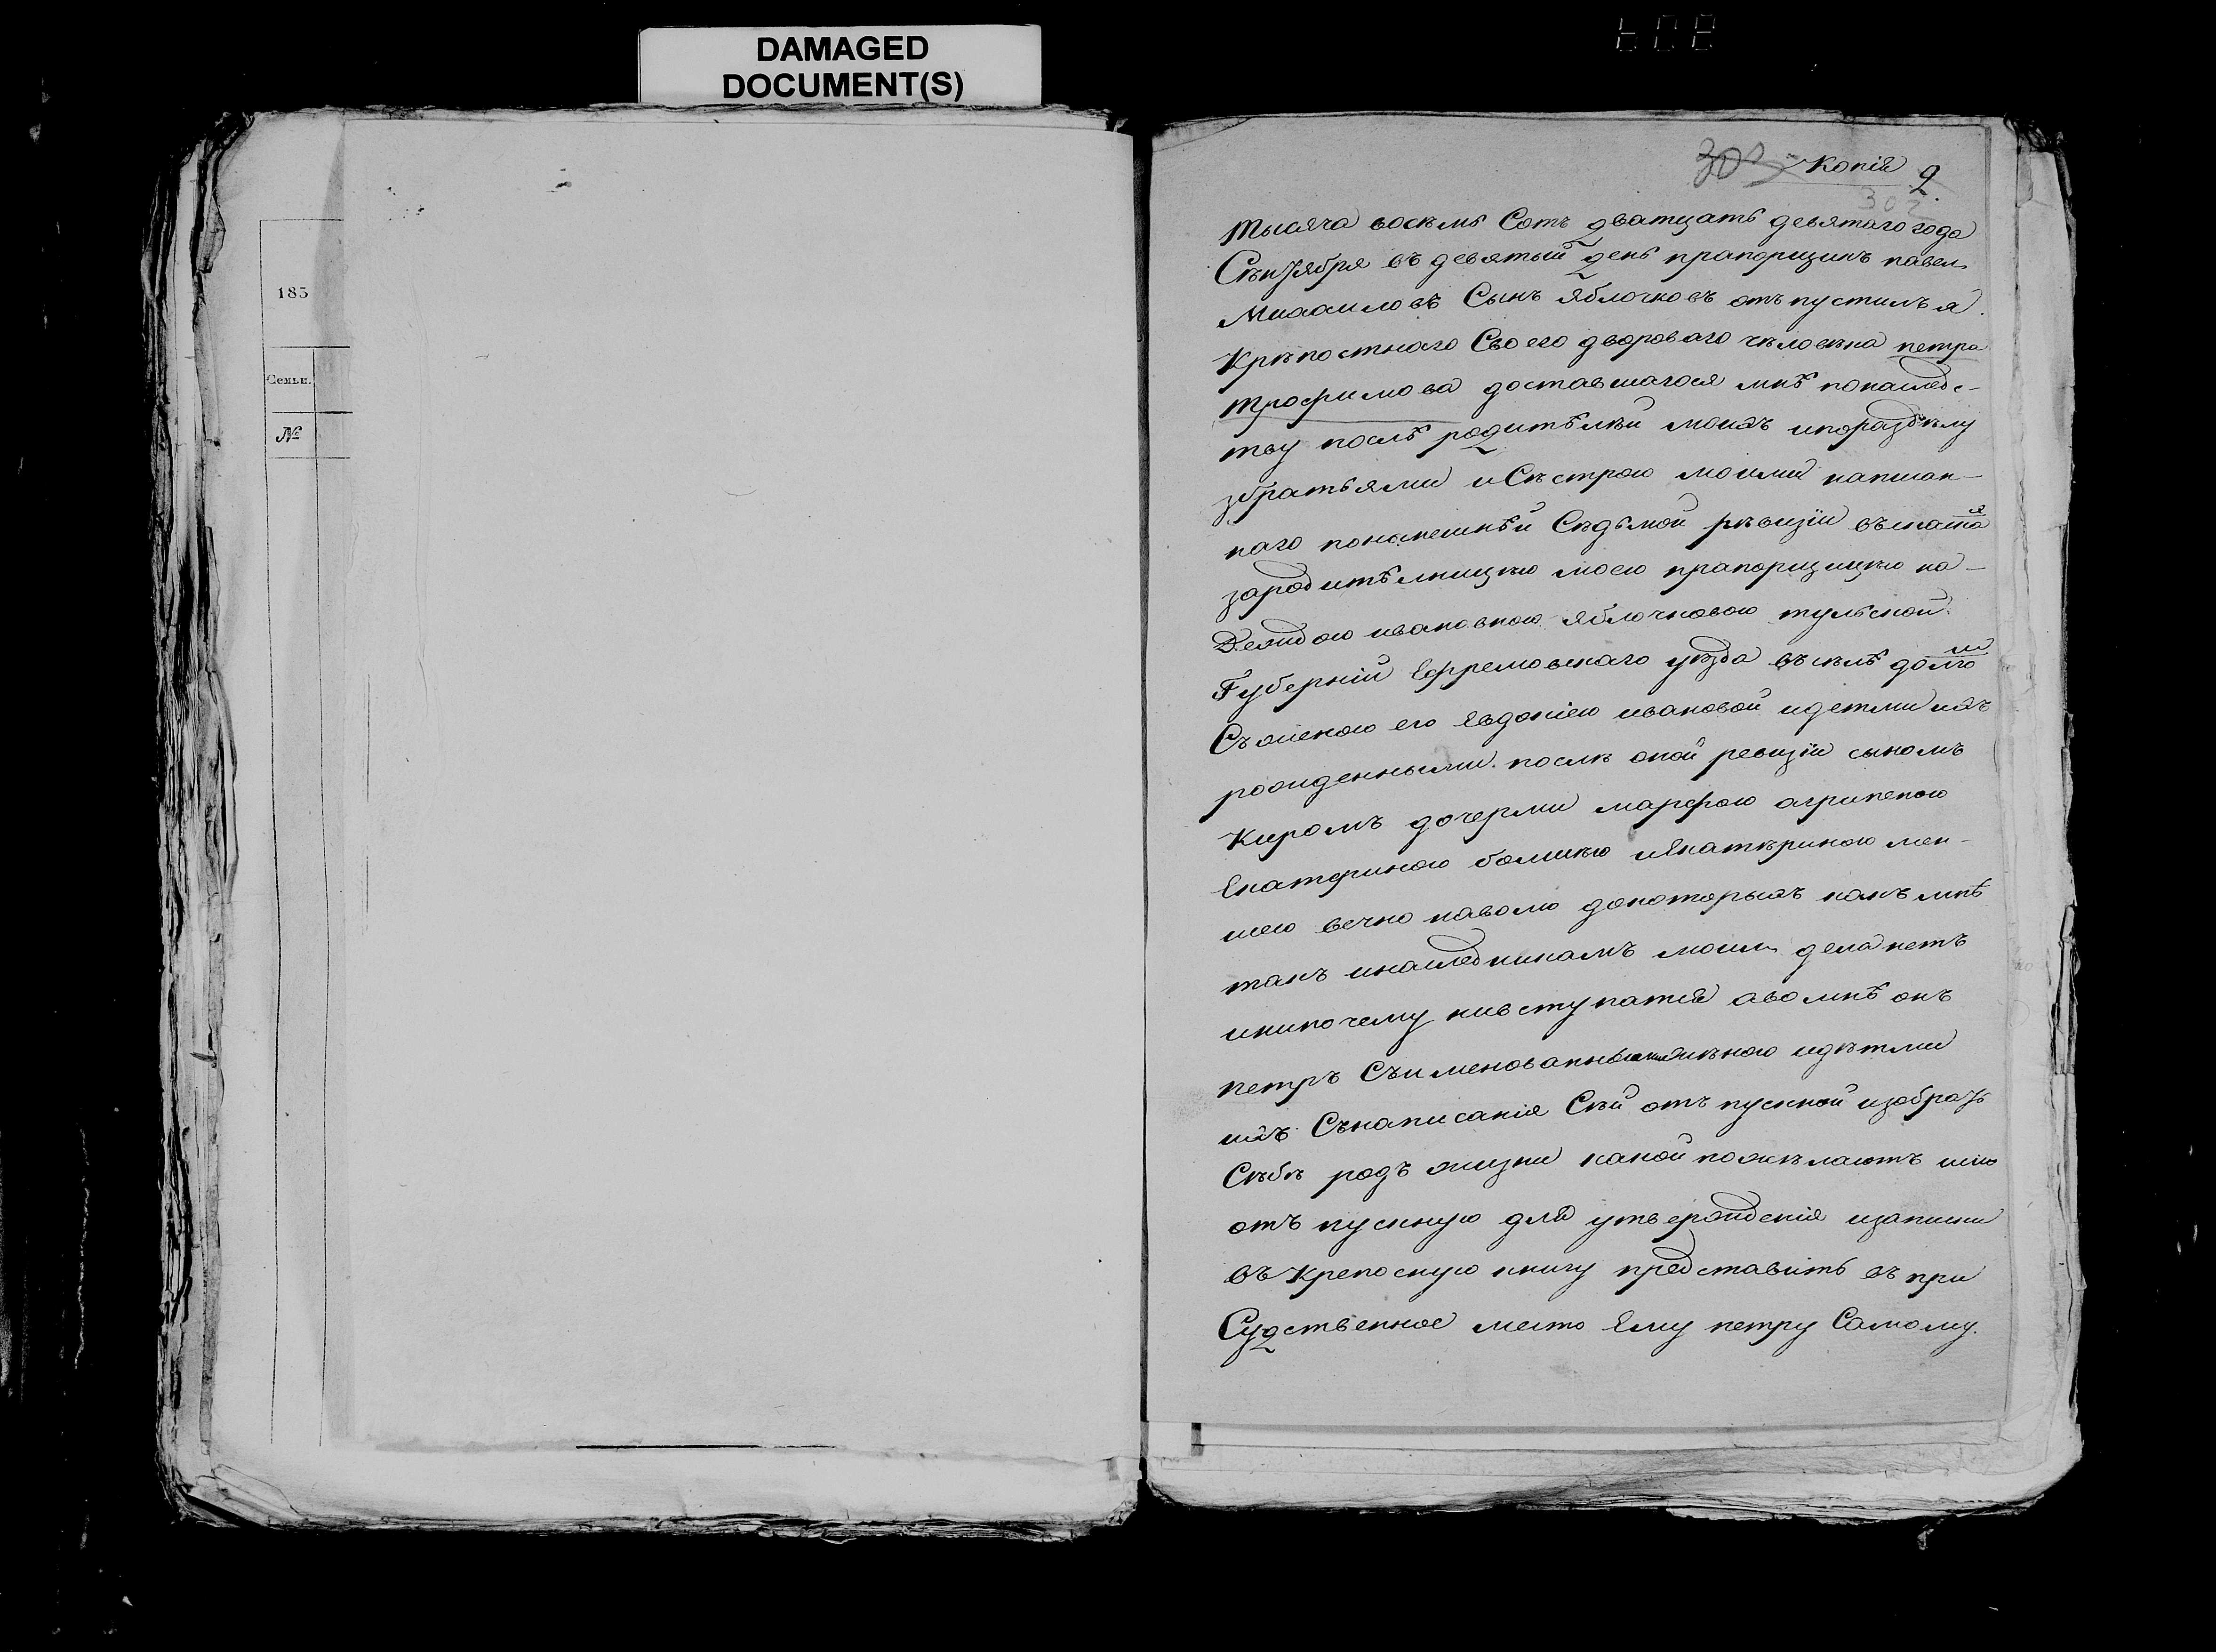 DAMAGED
DOCUMENT(S)
183
Семьи.
№
Копія 2.
302
тысяча восемь Сотъ дватцать девятаго года
Сентября въ девятый день прапорщикъ павел
Михаиловъ Сынъ Яблочковъ отъпустилъ я
Крепостнаго Своего двороваго человека петра
трофимова доставшагося мнѣ понаследс-
тву послѣ родитѣлей моихъ ипоразделу
збратьями иСестрою моими написан-
наго понынешнѣй Седьмой ревизіи
зародитѣлницею моею прапорщицею на-
деждою ивановною Яблочковою тульской
Губерніи Ефремовскаго уезда въ селѣ долго
Съженою его Евдокіею ивановой идетми ихъ
рожденными после оной ревизіи сыномъ
Киромъ дочерми марфою агрипеною
Екатериною болшею иЕкатериною мен-
шею вечно наволю докоторыхъ какъ мнѣ
такъ инаследникамъ моим дела нетъ
инипочему невступатся аволнѣ онъ
петръ Съименованными женою идетми
ихъ Снаписанія Сей отъпускной избрать
Себе родъ жизни какой пожелаютъ сию
отъпускную для утвержденія изаписки
въ Крепосную книгу представить въ при
Судственное место Ему петру Самому.